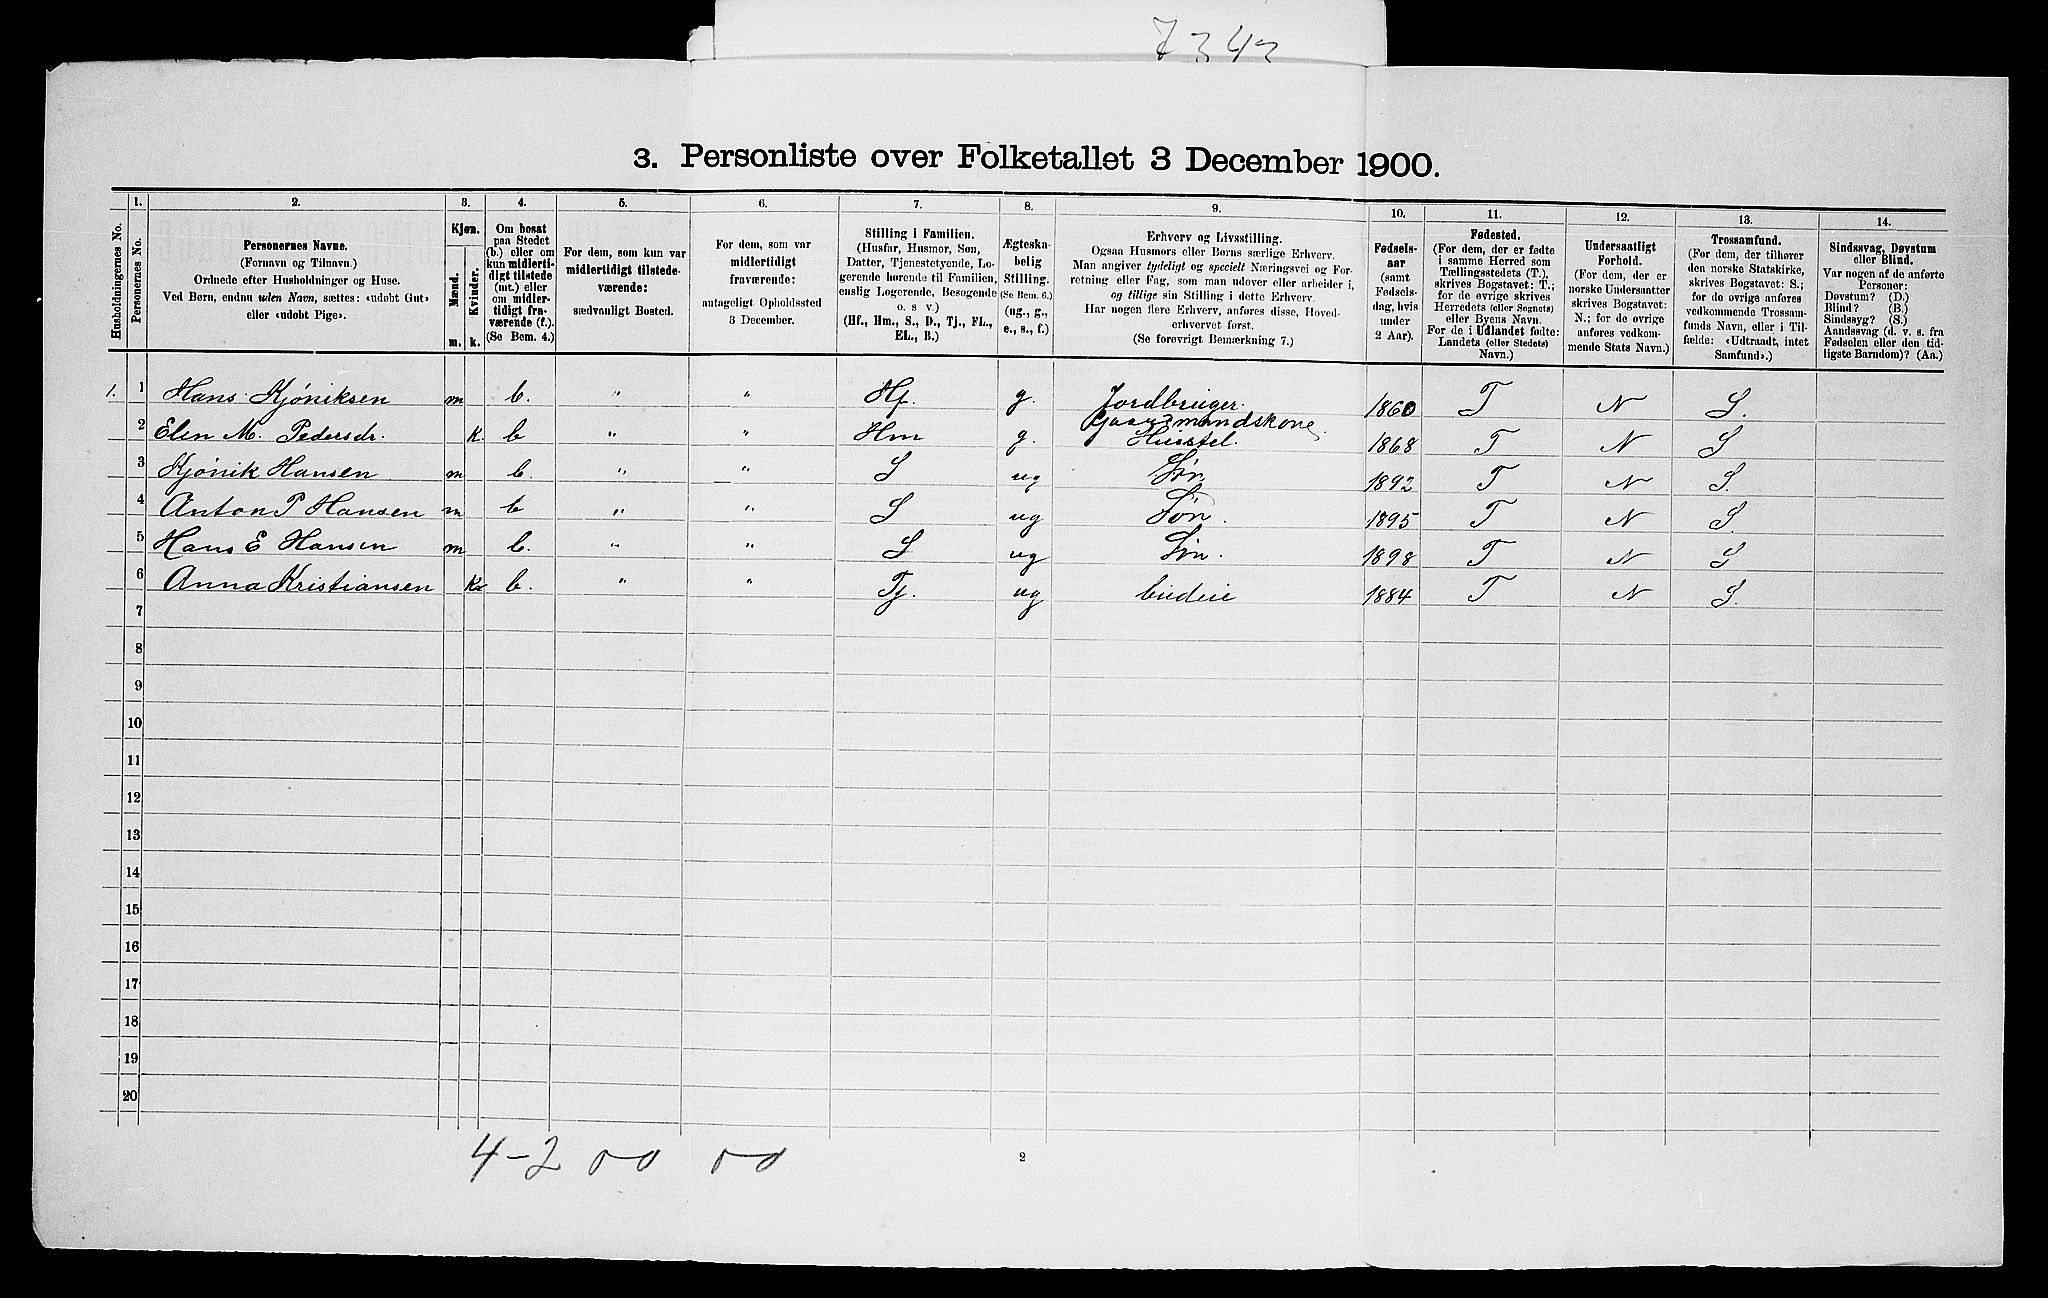 7343
3. Personliste over Folketallet 3 December 1900.
Husholdningernes No.
1.
Personernes No.
2.
Personernes Navne.
(Fornavn og Tilnavn.)
Ordnede efter Husholdninger og Huse.
Ved Børn, endnu uden Navn, sættes: «udobt Gut»
eller «udobt Pige».
3.
Kjøn.
Mænd.
Kvinder.
m. k.
4.
Om bosat
paa Stedet
(b.) eller om
kun midlerti-
digt tilstede
(mt.) eller
om midler-
tidigt fra-
værende (f.).
(Se Bem. 4.)
5.
For dem, som kun var
midlertidigt tilstede-
værende:
sædvanligt Bosted.
6.
For dem, som var
midlertidigt
fraværende:
antageligt Opholdssted
3 December.
7.
Stilling i Familien.
(Husfar, Husmor, Søn,
Datter, Tjenestetyende, Lo-
gerende hørende til Familien,
enslig Logerende, Besøgende
o. s v.)
(Hf., Hm., S., D., Tj., FL.,
EL., B.)
8.
Ægteska-
belig
Stilling.
(Se Bem. 6.)
(ug., g.,
e., s., f.)
9.
Erhverv og Livsstilling.
Ogsaa Husmors eller Børns særlige Erhverv.
Man angiver tydeligt og specielt Næringsvei og For-
retning eller Fag, som man udover eller arbeider i,
og tillige sin Stilling i dette Erhverv.
Har nogen flere Erhverv, anføres disse, Hoved-
erhvervet først.
(Se forøvrigt Bemærkning 7.)
10.
Fødsels-
aar
(samt
Fødsels-
dag, hvis
under
2 Aar).
11.
Fødested.
(For dem, der er fødte
i samme Herred som
Tællingsstedets (T.),
skrives Bogstavet: T.;
for de øvrige skrives
Herredets (eller Sognets)
eller Byens Navn.
For de i Udlandet fødte:
Landets (eller Stedets)
Navn.)
12.
Undersaatligt
Forhold.
(For dem, der er
norske Undersaatter
skrives Bogstavet:
N.; for de øvrige
anføres vedkom-
mende Stats Navn.)
13.
Trossamfund.
(For dem, der tilhører
den norske Statskirke,
skrives Bogstavet: S.;
for de øvrige anføres
vedkommende Trossam-
funds Navn, eller i Til-
fælde: «Udtraadt, intet
Samfund».)
14.
Sindssvag, Døvstum
eller Blind.
Var nogen af de anførte
Personer:
Døvstum? (D.)
Blind? (B.)
Sindssyg? (S.)
Aandssvag (d. v. s. fra
Fødselen eller den tid-
ligste Barndom)? (Aa.)
1. 1 Hans Kjøniksen m b. " " Hf. g. Jordbruger. 1860 T N S.
2 Elen M. Pedersdr. K. b " " Hm g. Gaardmandskone Husstel. 1868 T N S
3 Kjønik Hansen m b. " " S ug Søn 1892 T N S.
4 Anton P Hansen m b " " S ug Søn. 1895 T N S
5 Hans E Hansen m b. " " S ug Søn. 1898 T N S
6 Anna Kristiansen K b. " " Tj. ug budeie 1884 T N S.
7
8
9
10
11
12
13
14
15
16
17
18
19
20
4-2 00 00
2